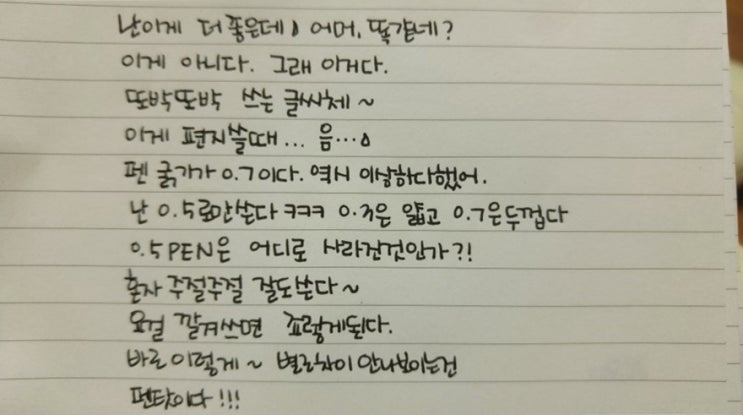 난이게 더 좋은데, 어머, 똑같네?
이게 아니다. 그래 이거다.
또박또박 쓰는 글씨체~
이게 편지쓸때... 음...
펜 굵기가 0.7이다. 역시 이상하다했어.
난 0.5로만쓴다 ㅋㅋㅋ 0.3은 얇고 0.7은두껍다
0.5PEN은 어디로 사라진것인가?!
혼자 주절주절 잘도쓴다~
요걸 갈겨쓰면 죠렇게된다.
바로 이렇게~ 별로차이 안나보이는건
펜탓이다!!!